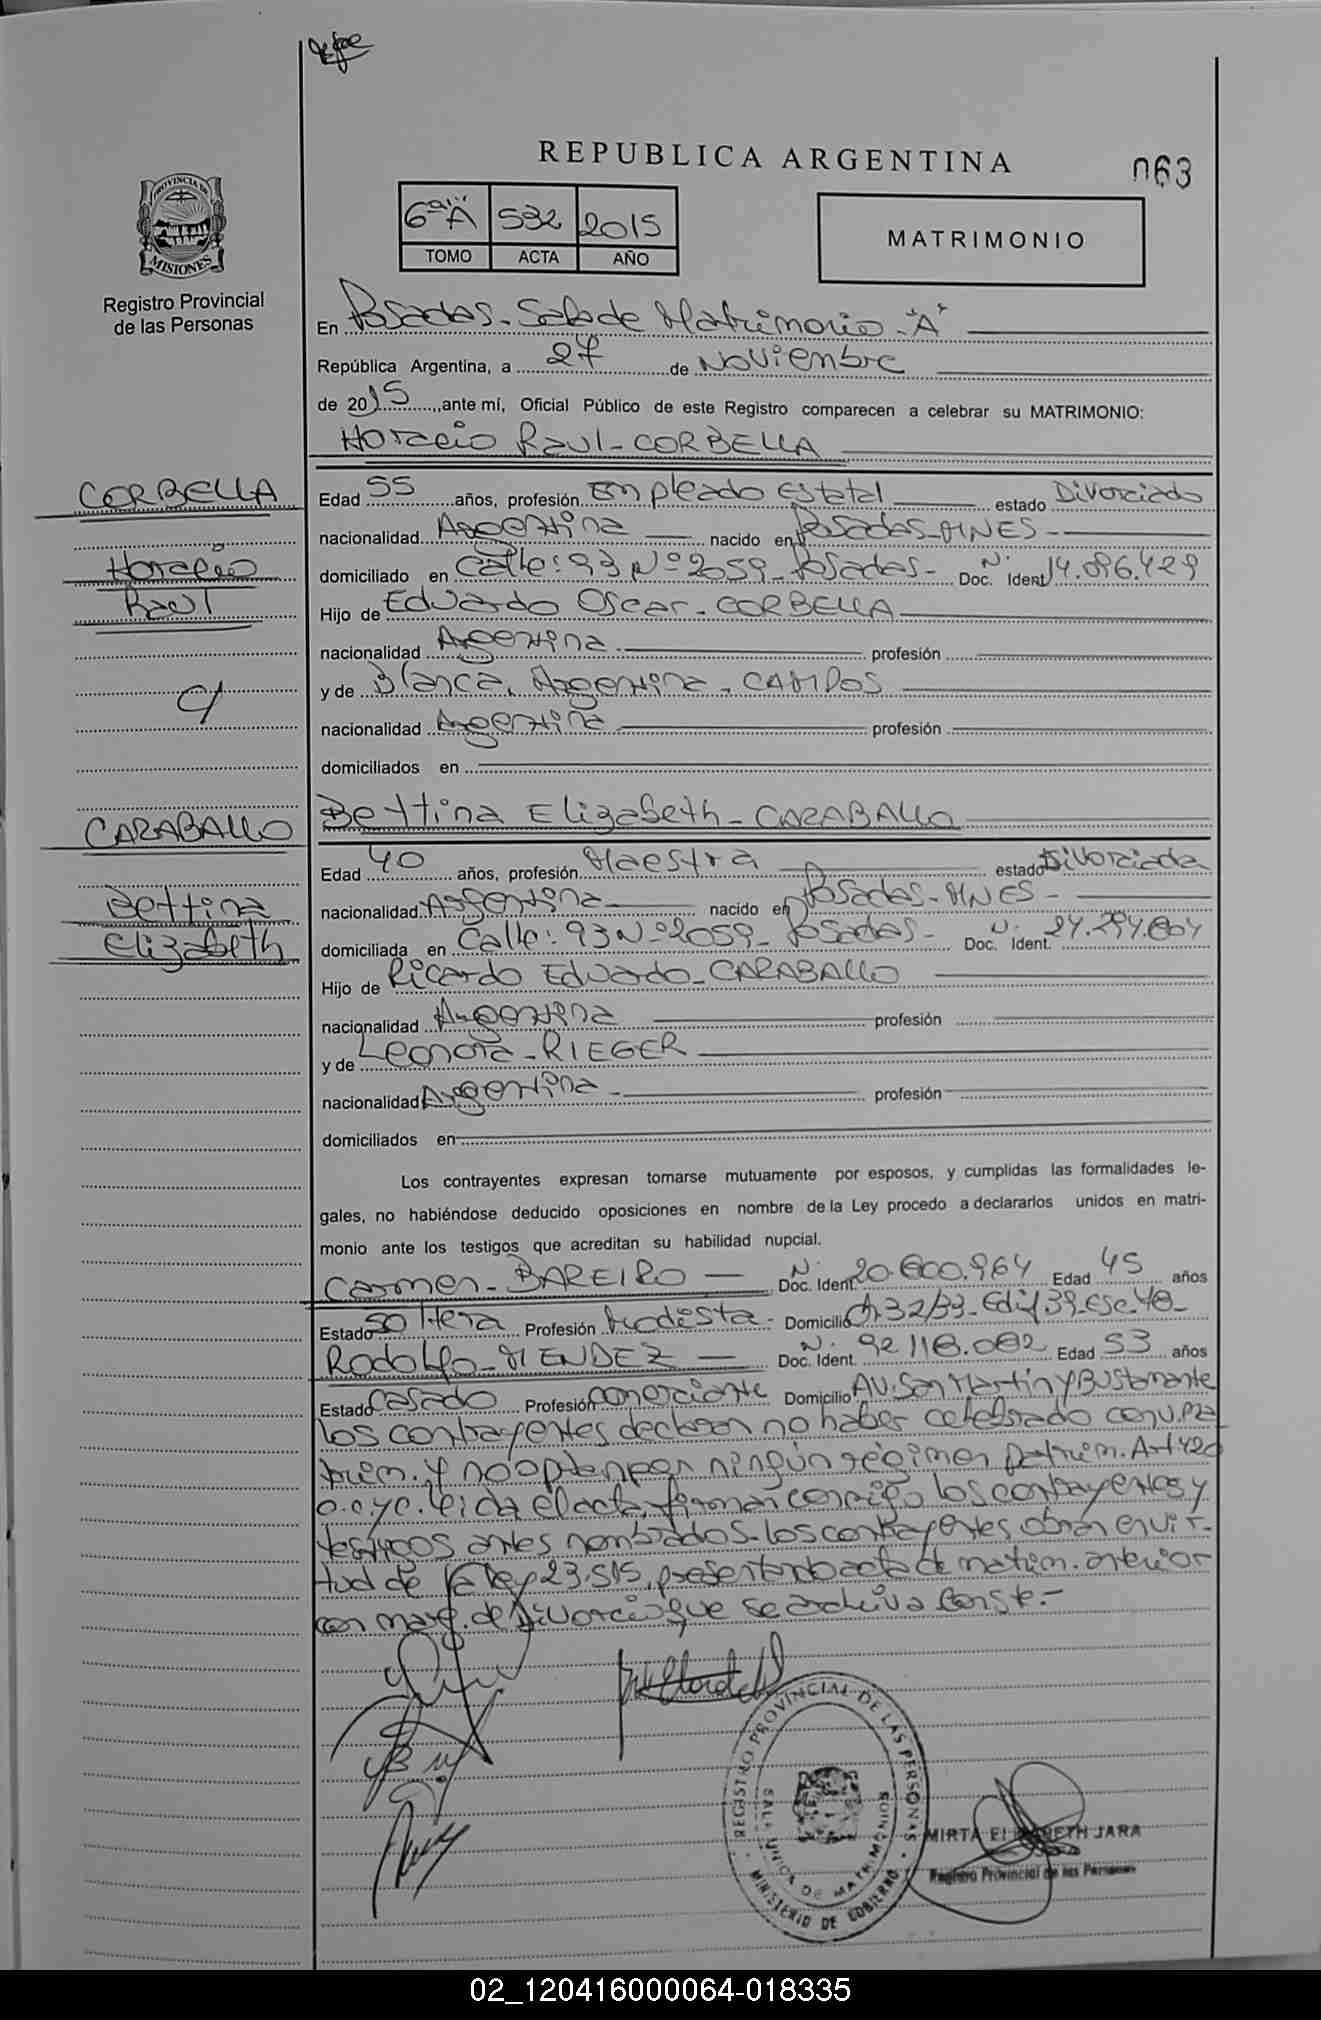 REPUBLICA ARGENTINA
063
PROVINCIA DE
MISIONES
Registro Provincial
de las Personas
6ª "A" 532 2015
TOMO ACTA AÑO
MATRIMONIO
En Posadas - Sala de Matrimonio - "A"
República Argentina, a 27 de Noviembre
de 2015, ante mí, Oficial Público de este Registro comparecen a celebrar su MATRIMONIO:
Horacio Raul - CORBELLA
CORBELLA
Horacio
Raul
c/
CARABALLO
Bettina
Elizabeth
Edad 55 años, profesión Empleado Estatal estado Divorciado
nacionalidad Argentina nacido en Posadas - MNES -
domiciliado en Calle: 93 Nº 2059 - Posadas - Doc. Ident. Nº 14.096.429
Hijo de Eduardo Oscar - CORBELLA
nacionalidad Argentina profesión
y de Blanca, Argentina - CAMPOS
nacionalidad Argentina profesión
domiciliados en
Bettina Elizabeth - CARABALLO
Edad 40 años, profesión Maestra estado Divorciada
nacionalidad Argentina nacido en Posadas - MNES -
domiciliada en Calle: 93 Nº 2059 - Posadas - Doc. Ident. Nº
Hijo de Ricardo Eduardo - CARABALLO
nacionalidad Argentina profesión
y de Leonora - RIEGER
nacionalidad Argentina - profesión
domiciliados en
Los contrayentes expresan tomarse mutuamente por esposos, y cumplidas las formalidades le-
gales, no habiéndose deducido oposiciones en nombre de la Ley procedo a declararlos unidos en matri-
monio ante los testigos que acreditan su habilidad nupcial.
Carmen - BAREIRO - Doc. Ident. Nº 20.600.964 Edad 45 años
Estado Soltera Profesión Modista - Domicilio Ch. 32/33 - Edif 39 - esc. 48 -
Rodolfo - MENDEZ - Doc. Ident. Nº 92.118.082 Edad 53 años
Estado Casado Profesión comerciante Domicilio AV. San Martin y Bustamante
los contrayentes declaran no haber celebrado conv. ma
trim. y no optan por ningún régimen patrim. Art 420
c.c y c. leida el acta, firman conmigo los contrayentes y
testigos antes nombrados - los contrayentes obran en vir-
tud de la ley 23.515, presentando acta de matrim. anterior
con marg. de divorcio que se archiva Conste.-
REGISTRO PROVINCIAL DE LAS PERSONAS
SALA UNICA DE MATRIMONIOS
MINISTERIO DE GOBIERNO
MIRTA ELIZABETH JARA
Registro Provincial de las Personas
02_120416000064-018335